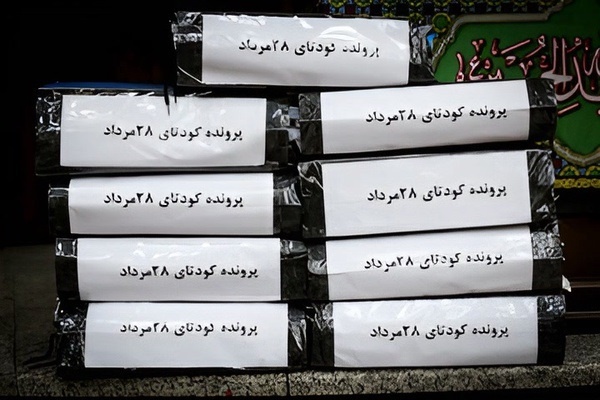 پرونده کودتای ۲۸مرداد
پرونده کودتای ۲۸مرداد
پرونده کودتای ۲۸مرداد
پرونده کودتای ۲۸مرداد
پرونده کودتای ۲۸مرداد
پرونده کودتای ۲۸مرداد
پرونده کودتای ۲۸مرداد
پرونده کودتای ۲۸مرداد
پرونده کودتای ۲۸مرداد